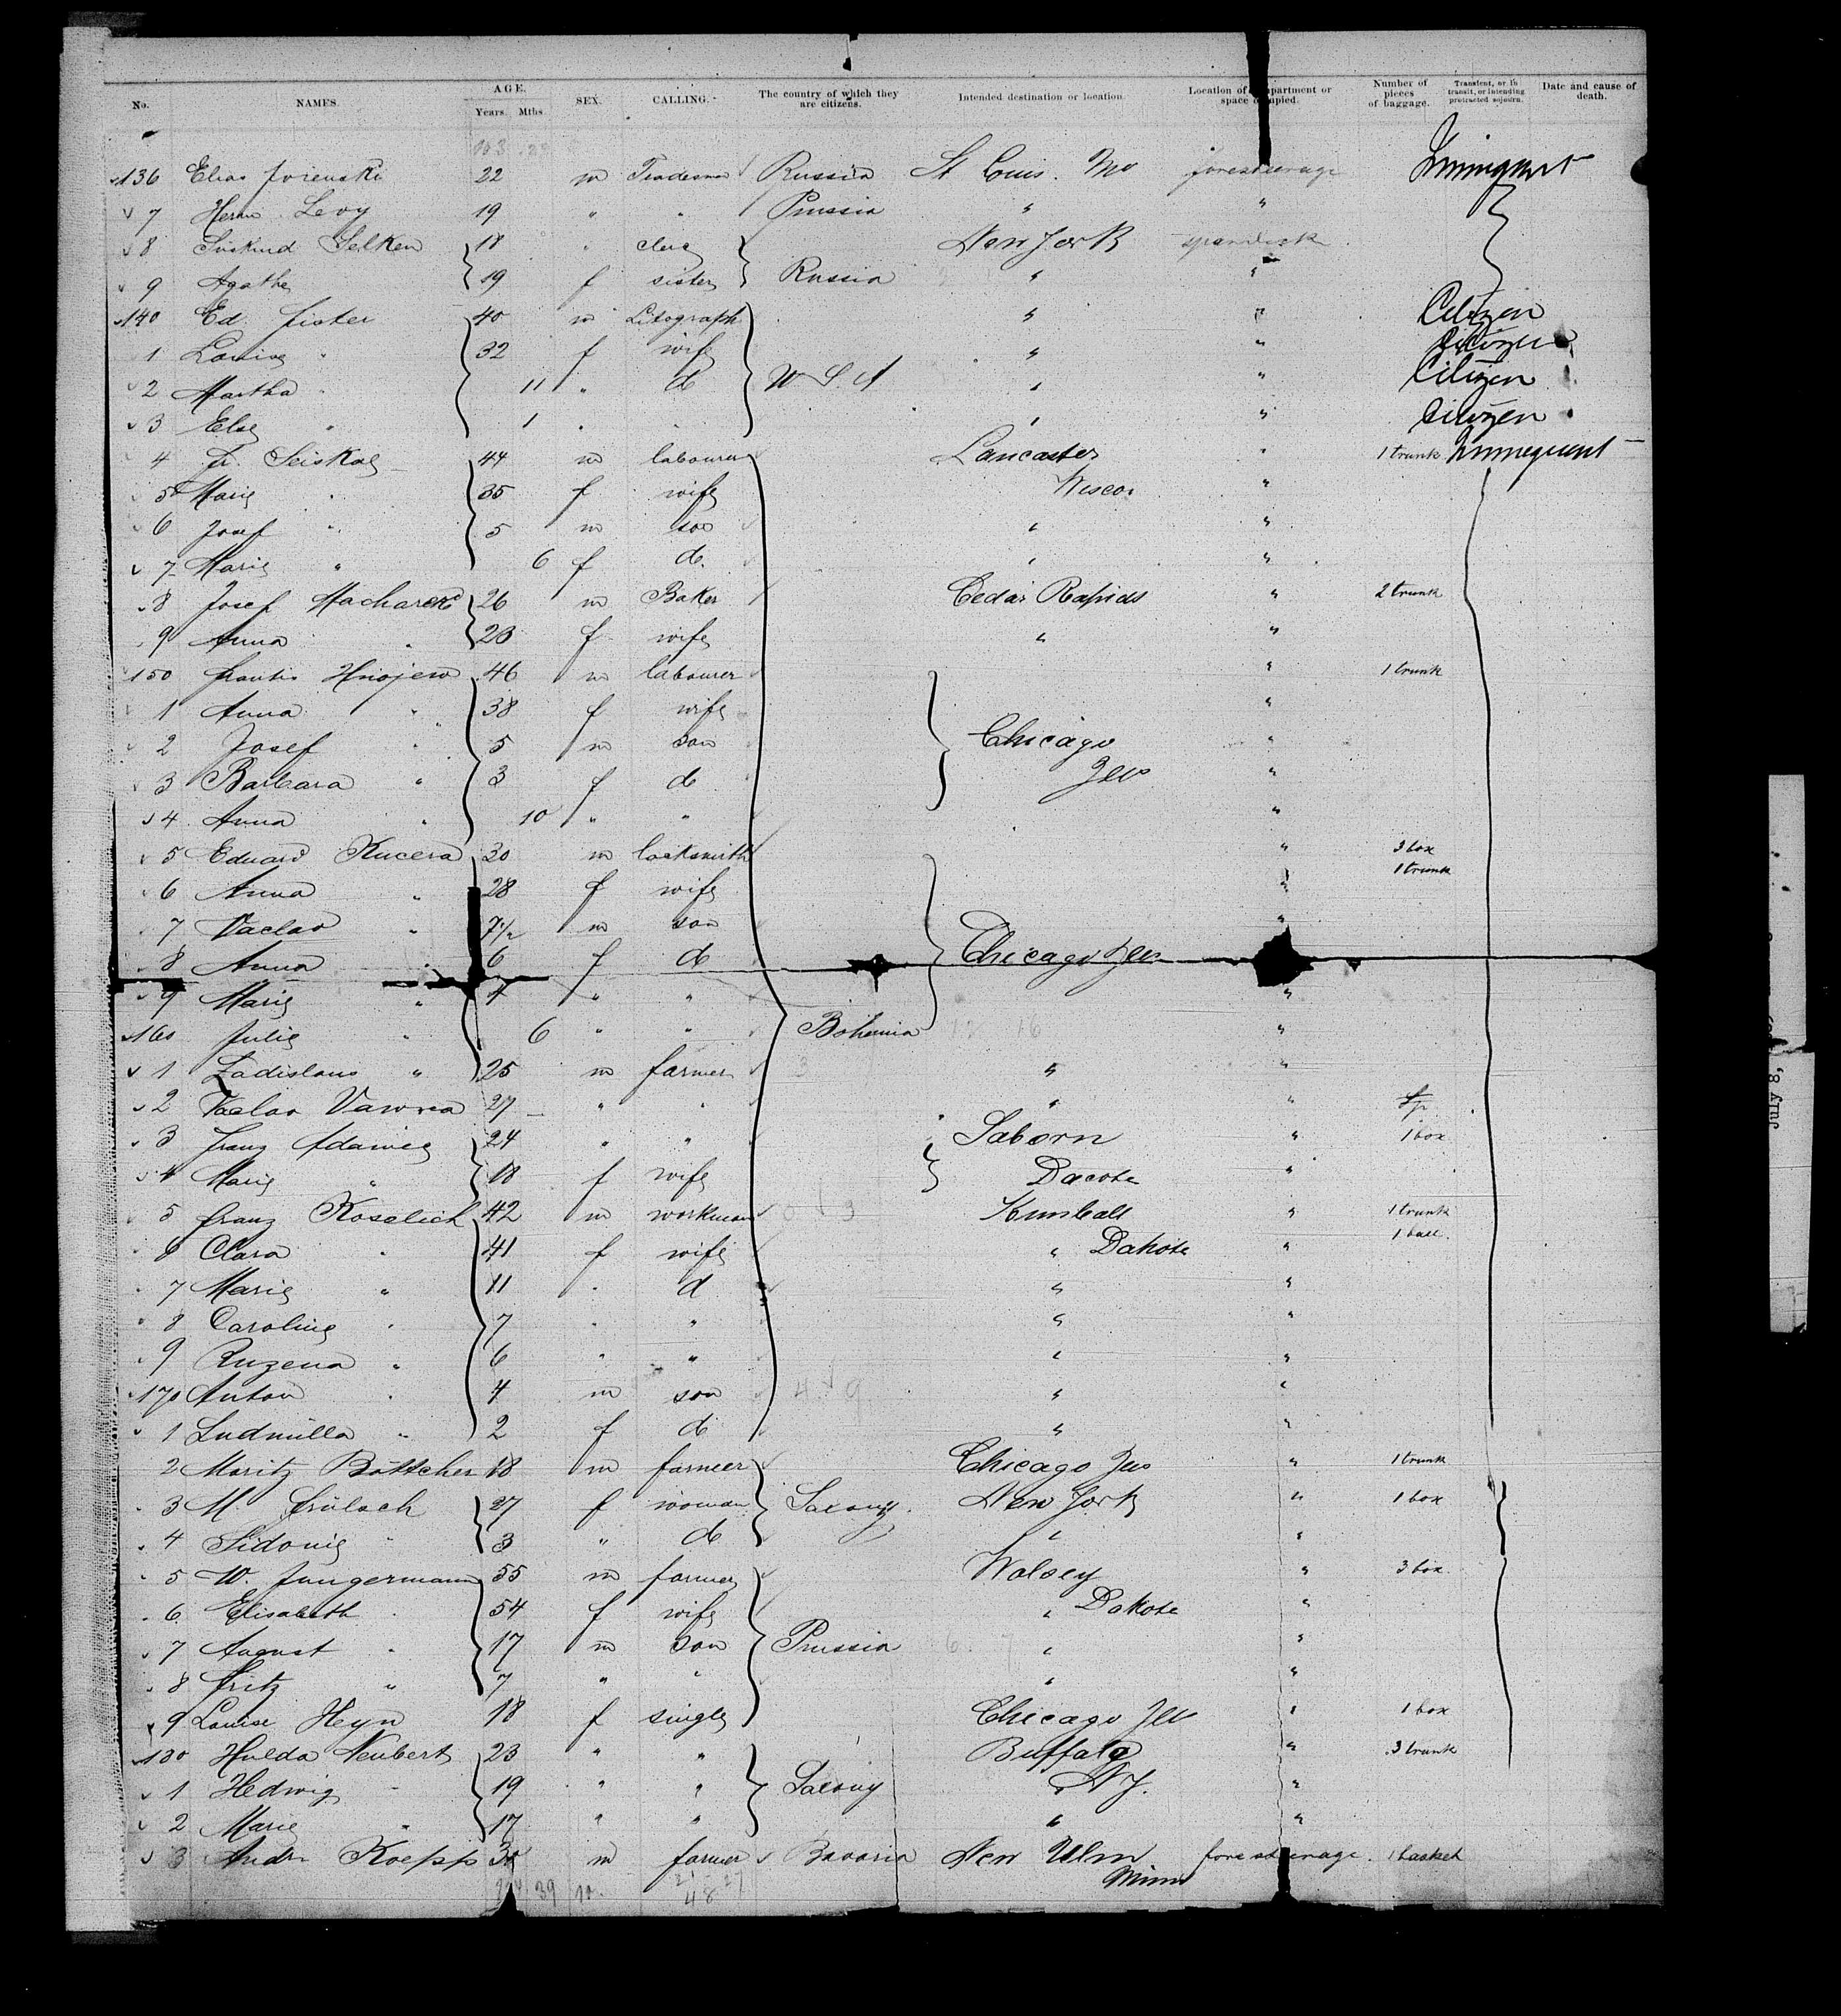 No. NAMES. AGE. Years. Mths. SEX. CALLING. The country of which they are citizens. Intended destination or location. Location of compartment or space occupied. Number of pieces of baggage. Transient, or in transit, or intending protracted sojourn. Date and cause of death.
136 Elias 22 m Tradesman Russia St Louis. Mo foresteerage Immigrant
7 Herm Levy 19 " " Prussia " "
8 Selken 18 " New York
9 Agathe 19 f sister Russia " "
140 Ed. Fister 40 m Litograph " " Citizen
1 Louise " 32 f wife " " Citizen
2 Martha " 11 " d U S A " " Citizen
3 Else " 1 " " " " Citizen
4 Fr. Seiskal 44 m labourer Lancaster " 1 trunk Immigrant
5 Marie " 35 f wife Wiscon "
6 Josef " 5 m son " "
7 Marie " 6 f d. " "
8 Josef 26 m Baker Cedar Rapids " 2 trunk
9 Anna " 23 f wife " "
150 Frantis Hnojew 46 m labourer " 1 trunk
1 Anna " 38 f wife "
2 Josef " 5 m son Chicago "
3 Barbara " 3 f d Ills "
4 Anna " 10 " " "
5 Eduard Kucera 30 m locksmith " 3 box
6 Anna " 28 f wife " 1 trunk
7 Vaclav " 7 1/2 m son "
8 Anna " 6 f d Chicago Ills
9 Marie " 4 " " "
160 Julie " 6 " " Bohemia "
1 Ladislaus " 25 m farmer " "
2 Vaclav Vawra 27 " " " "
3 Franz 24 " " Saborn " 1 box
4 Marie " 18 f wife Dacota "
5 Franz Koselich 42 m workman Kimball " 1 trunk
6 Clara " 41 f wife " Dakota "
7 Marie " 11 " d " "
8 Caroline " 7 " " " "
9 Ruzena " 6 " " " "
170 Anton " 4 m son " "
1 Ludmilla " 2 f d " "
2 Moritz Böttcher 18 m farmer Chicago Ills " 1 trunk
3 M. 27 f woman Saxony. New York " 1 box
4 Sidonie " 3 " d " "
5 W. Jungermann 55 m farmer Wolsey " 3 box
6 Elisabeth " 54 f wife " Dakota "
7 August " 17 m son Prussia " "
8 Fritz " 7 " " " "
9 Louise Heyn 18 f single Chicago Ills " 1 box
180 Hulda Neubert 23 " " Buffalo " 3 trunk
1 Hedwig " 19 " " Saxony " N Y. "
2 Marie " 17 " " " "
3 Andr Koepp m farmer Bavaria New Ulm foresteerage. 1 basket
Minn
48
July 8,